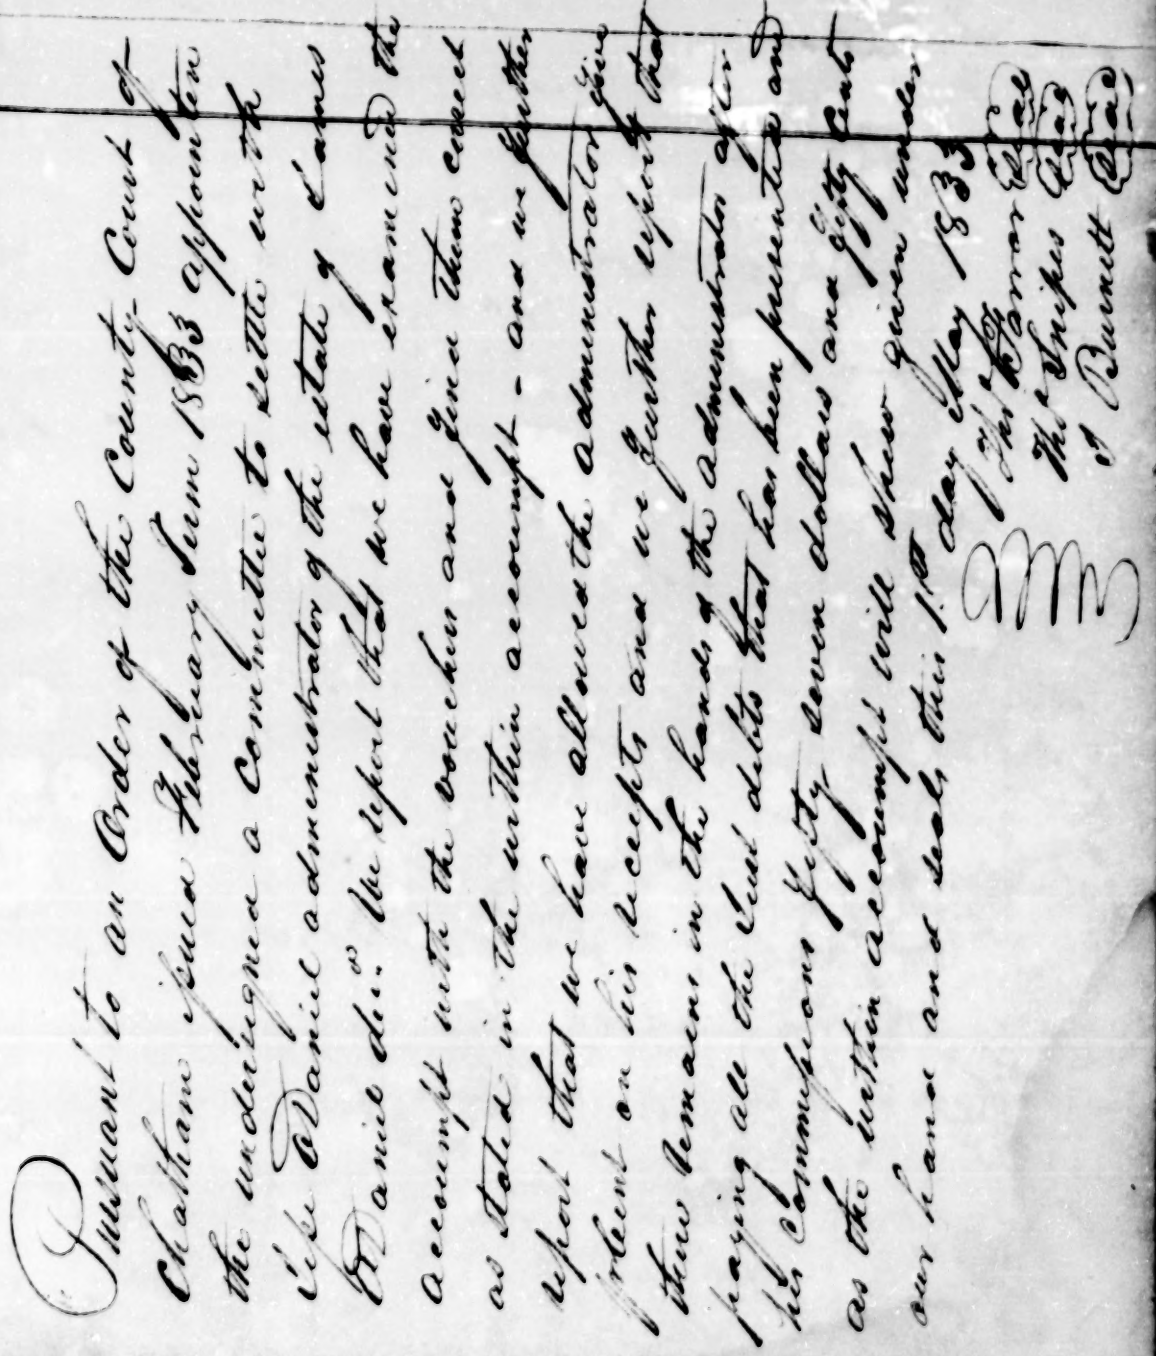 Pursuant to an Order of the County Court of
Chatham issued February Term 1833 appointen
the undersigned a Committee to settle with
Daniel administrator of the estate of James
Daniel decd. We report that we have examined the
accoumpt with the vouchers and find them correct
as stated in the within accoumpt - and we further
report that we have allowed the administrator five
percent on his receipts and we further report that
there remains in the hands of the administrator after
paying all the Just debts that has been presented and
his Commissions fifty seven dollars and fifty Cents
as the within accoumpt will shew given under
our hand and seals this 1.st day of May 1833
Thos Farrar Seal
Thos Snipes Seal
I Burnett Seal